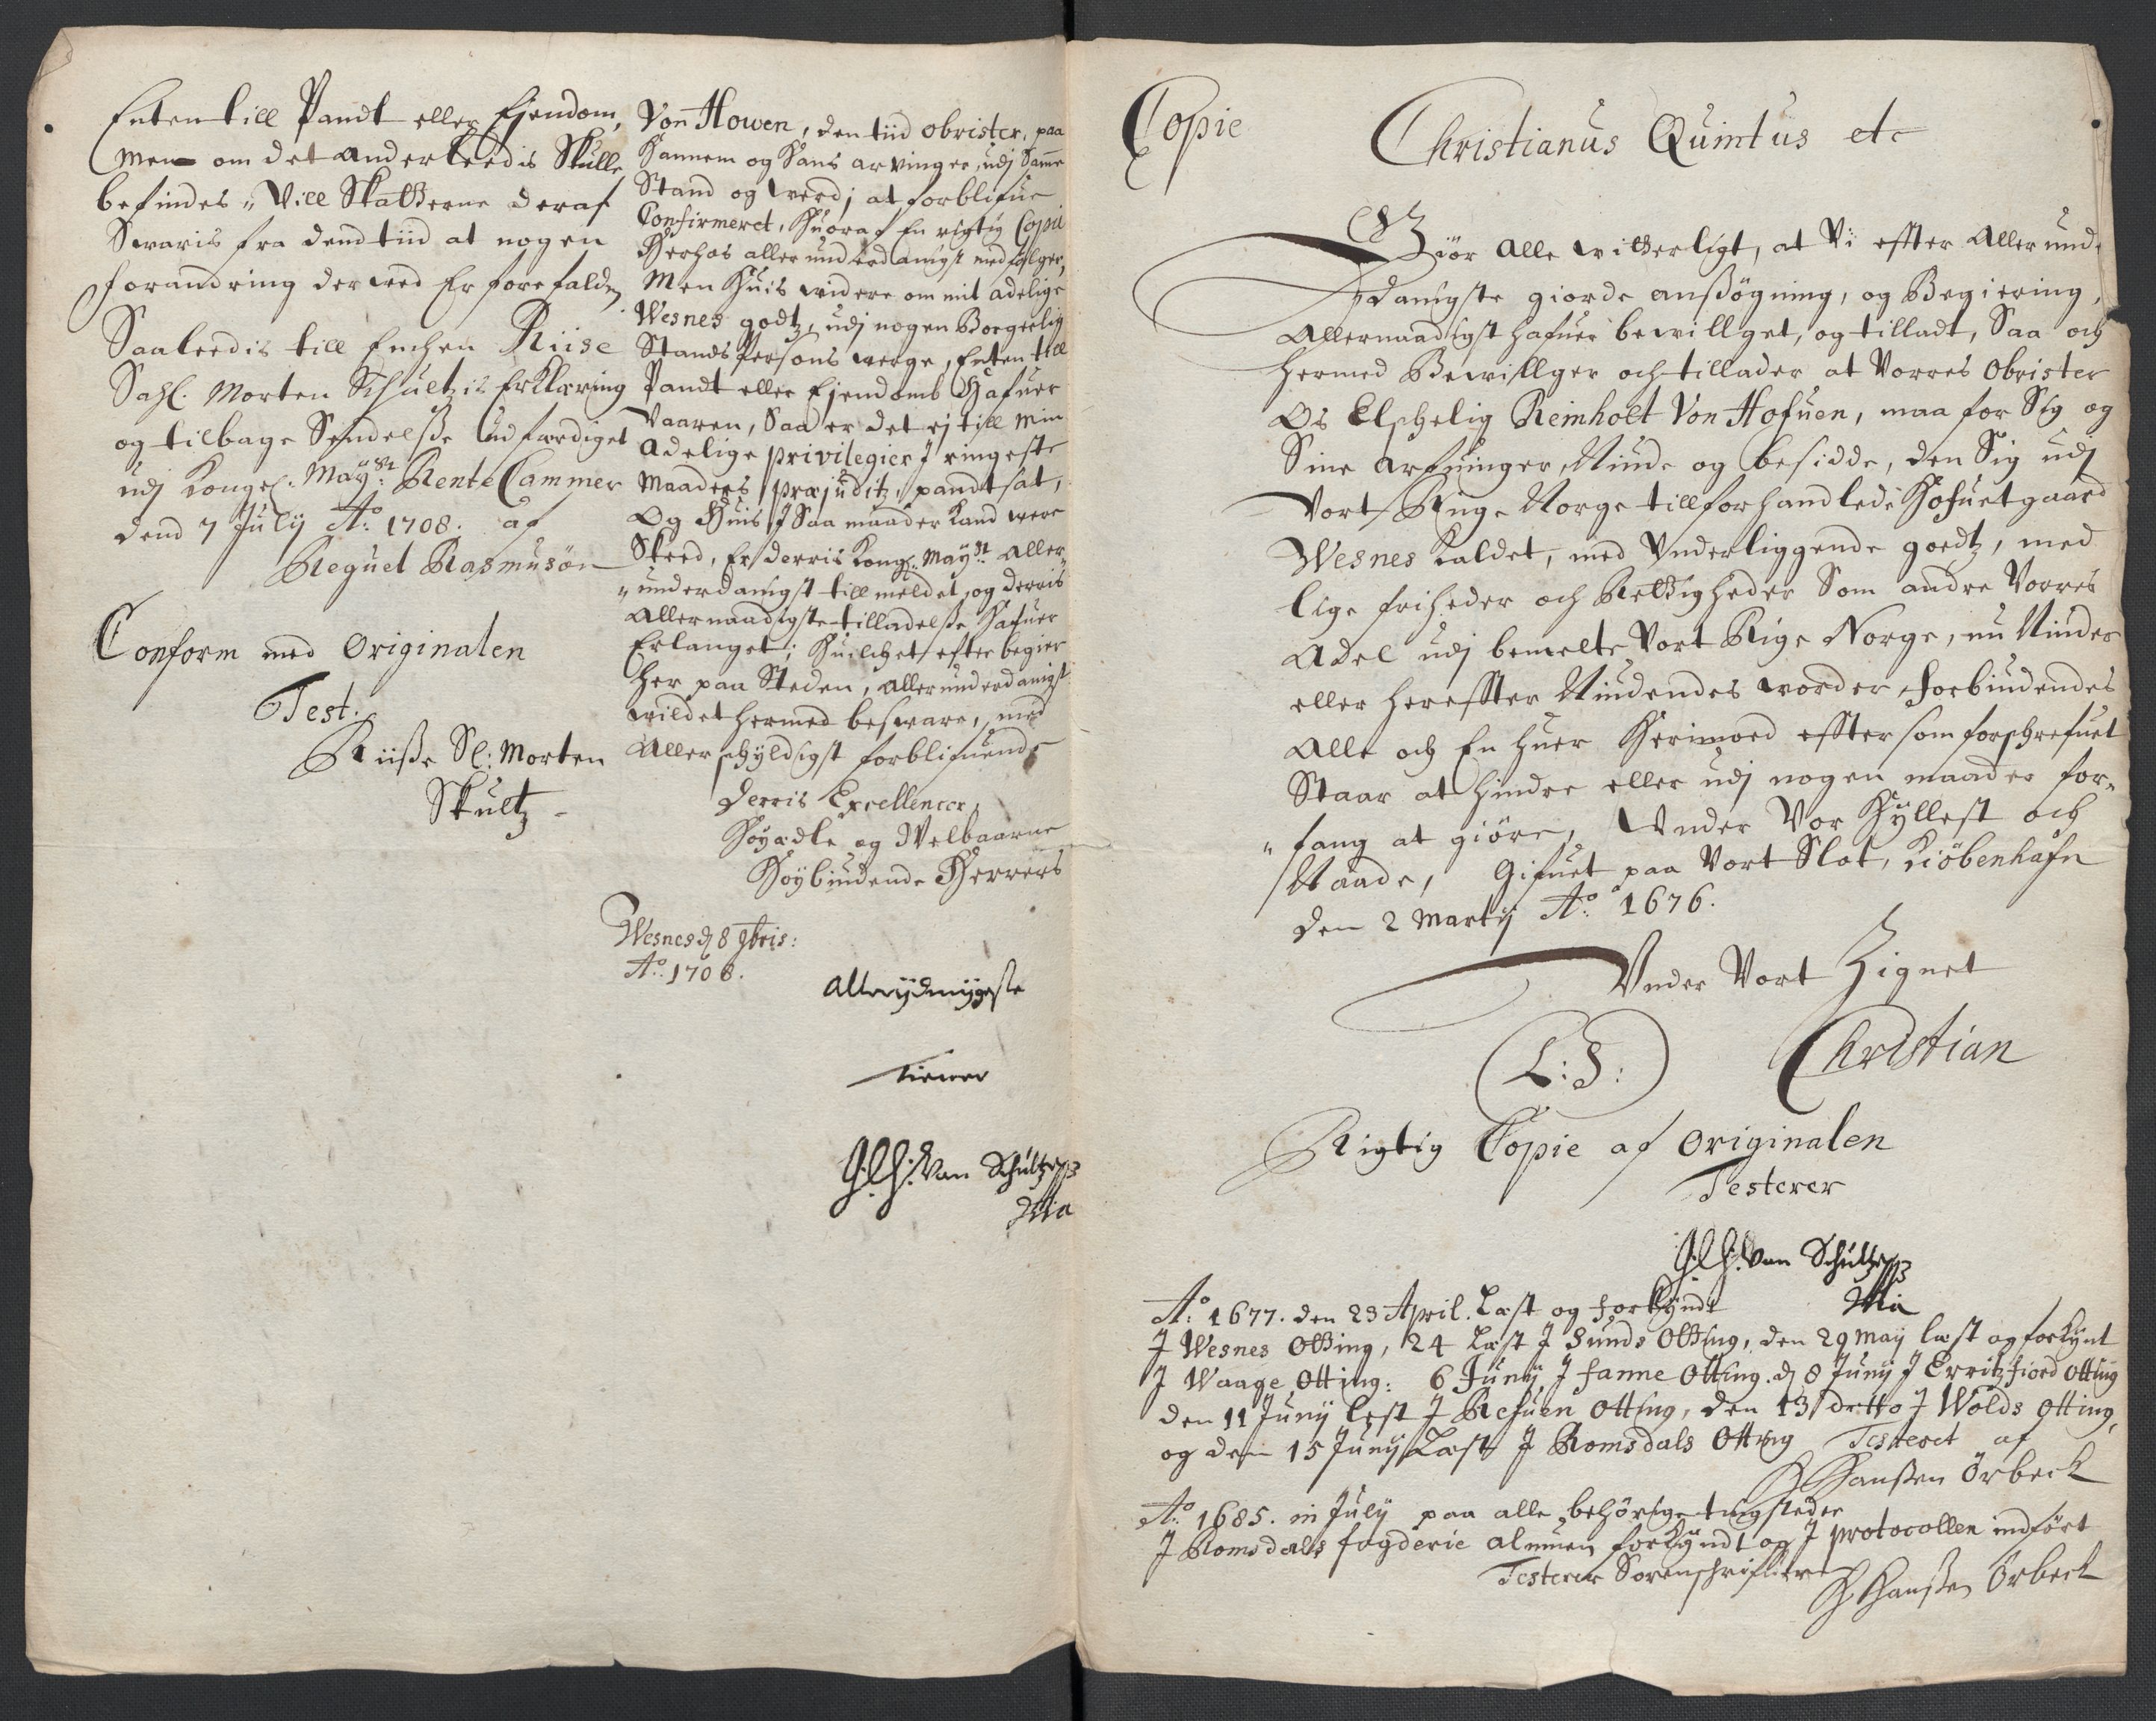 Enten till Pandt eller Ejendom,
Men om det anderleedis Skulle
befindes, Vill Skatterne deraf
Svaris fra dend tiid at nogen
forandring derved Er forefalden,
Saaleedis till Enchen Riise
Sahl. Morten Schultzis Erklæring
og tilbage Sendelsse Udferdiget
udj Kongel. May:tz Rente Cammer
dend 7 July Ao: 1708. af
Reguel Rasmusøn
Conform med Originalen
Test.
Riisse Sl: Morten
Skultz -
Von Howen, den tiid obrister, paa
Hannem og Hans arvinger, udj Samme
Stand og werdj at forblifue
Confirmeret, Huoraf En rigtig Copie
Herhos allerunderdanigst medfølger,
Men Huis widere om mit adelige
Wesnes godtz, udj nogen Borgerlig
Stands Persons werge, Enten till
Pandt eller Ejendomb Hafuer
Vaaren, Saa er det ej till min
Adelige privilegier J ringeste
Maader præjuditz, pandtsat,
Og Huis J Saa maader kand were
Skeed, Er derris Kongl: May:tt Aller
"underdanigst tillmeldet, og derris
Allernaadigste tilladelsse Hafuer
Erlanget; Huilchet efter begier
Her paa Steden, allerunderdanigst
vildet hermed besvare, med
Allerschyldigst forblifuende
Derris Excellencer,
Høyædle og Welbaarne
Høybiudende Herrers
Wesnes d 8 9bris:
Ao: 1708.
Allerydmygeste
tiener
von Schultz
Mia
Copie
Christianus Quintus etc
Giør Alle witterligt, at Vi effter Allerund-
danigste giorde anssøgning, og Begiering,
Allernaadigst hafuer bewillget, og tilladt, Saa och
hermed Bewillger och tillader at Vorres Obrister
Os Elschelig Reinholt Von Hofuen, maa for Sig og
Sine Arfuinger Niude og besidde, den Sig udj
Vort Rige Norge tillforhandlede Hofuetgaard
Wesnes kaldet, med Underliggende goedtz, med
lige friheder och Rettigheder Som andre Vorres
Adel udj bemelte Vort Rige Norge, nu Niuder
eller hereffter Niudendes worder, forbiudendes
Alle och En huer Herimoed efftersom forschrefuet
Staar at hindre eller udj nogen maader for-
"fang at giøre, Under Vor Hyllest och
Naade, Gifuet paa Vort Slot, Kiøbenhafn
den 2 Martij Ao: 1676.
Under Vort Zignet
L:S: Christian
Rigtig Copie af Originalen
Testerer
von Schultz
Mia
Ao: 1677. den 23 April. Læst og forkyndt
J Wesnes Otting, 24 Læst J Sunds Otting, den 29 May læst og forkynt
J Waage Otting: 6 Juny J fanne Otting. d 8 Juny J Erritzfiord Otting
den 11 Juny lest J Refuen Otting, den 13 ditto J Wolds Otting,
og den 15 Juny Læst J Romsdals Otting Testeret af
H Hanssen Ørbeck
Ao: 1685. in July paa alle behørige tingsteder
J Romsdals fogderie almuen forkyndt og J protocollen indført
Testerer Sorenschrifuer
H Hanssen Ørbeck